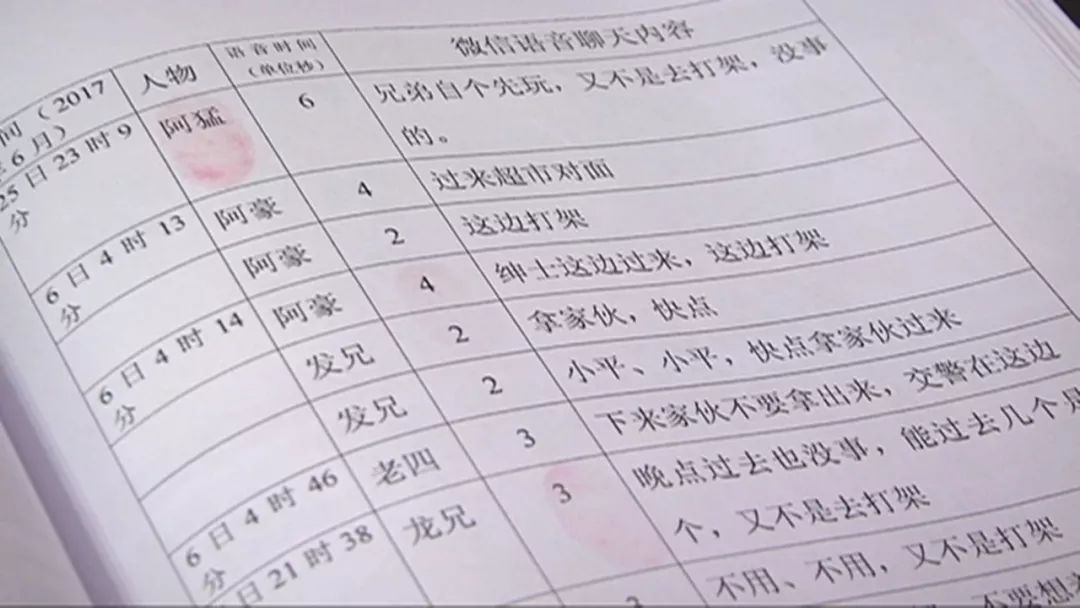 间（2017
6月）
人物
语音时间
（单位秒）
微信语音聊天内容
25日23时9
分
阿猛
6
兄弟自个先玩，又不是去打架，没事
的。
6日4时13
分
阿豪
4
过来超市对面
阿豪
2
这边打架
6日4时14
分
阿豪
4
绅士这边过来，这边打架
发兄
2
拿家伙，快点
发兄
2
小平、小平，快点拿家伙过来
6日4时46
分
老四
3
下来家伙不要拿出来，交警在这边
日21时38
龙兄
3
晚点过去也没事，能过去几个是
个，又不是去打架
不用、不用，又不是打架
不要想